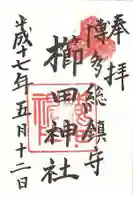 奉拝
博多総鎮守
櫛田神社
平成十七年五月十二日